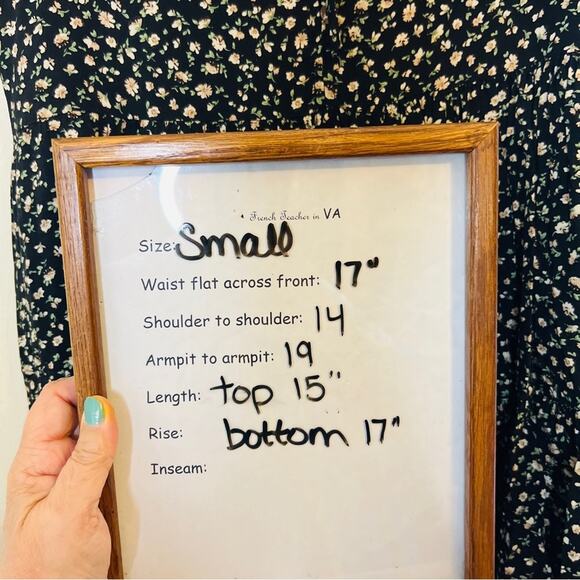 French Teacher in VA
Size: Small
Waist flat across front: 17"
Shoulder to shoulder: 14
Armpit to armpit: 19
Length: top 15"
Rise: bottom 17"
Inseam: